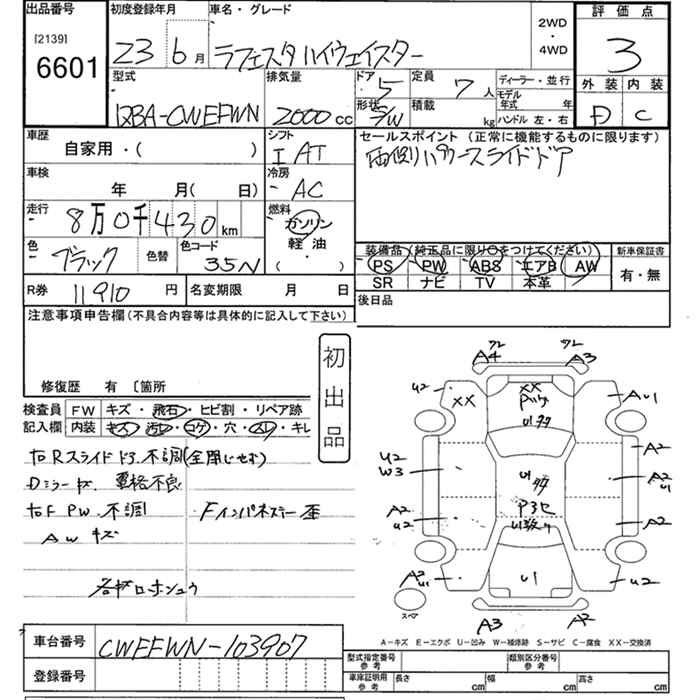 出品番号
[2139]
6601
初度登録年月
23 6月
車名・グレード
ラフェスタ ハイウェイスター
2WD
・
4WD
評価点
3
外装 内装
D C
型式
DBA-CWEFWN
排気量
2000 cc
ドア
5
形状
S/W
定員
7 人
積載
kg
ディーラー・並行
モデル年式 年
ハンドル 左・右
車歴
自家用・( )
シフト
I AT
セールスポイント (正常に機能するものに限ります)
両側パワースライドドア
車検
年 月( 日)
冷房
AC
走行
8万0千430km
燃料
ガソリン
軽油
( ・ )
色
ブラック
色替
色コード
35N
装備品 (純正品に限り○をつけてください)
PS PW ABS エアB AW
SR ナビ TV 本革
新車保証書
有・無
R券 11910 円
名変期限 月 日
後日品
注意事項申告欄(不具合内容等は具体的に記入して下さい)
修復歴 有 〔箇所
初出品
検査員記入欄
FW キズ・飛石・ヒビ割・リペア跡
内装 キズ・汚レ・コゲ・穴・スレ・キレ
右Rスライドドア不調(全閉じせず)
Dミラーキズ 電格不良
右F PW 不調 Fインパネステー歪
AW キズ
各部ロホシュウ
タレ
A4
タレ
A3
U2
XX
XX
Pハゲ
U1多
AU1
U2
W3
A2
A2
U1
U1
多
A2
U2
PヨゴレU1数ヶ
A2
A2
U1
U1
U2
スペア
A3
A2
A-キズ E-エクボ U-凹み W-補修跡 S-サビ C-腐食 XX-交換済
車台番号 CWEFWN-103907
登録番号
型式指定番号
参考
類別区分番号
参考
車庫証明用
参考
長さ cm
幅 cm
高さ cm